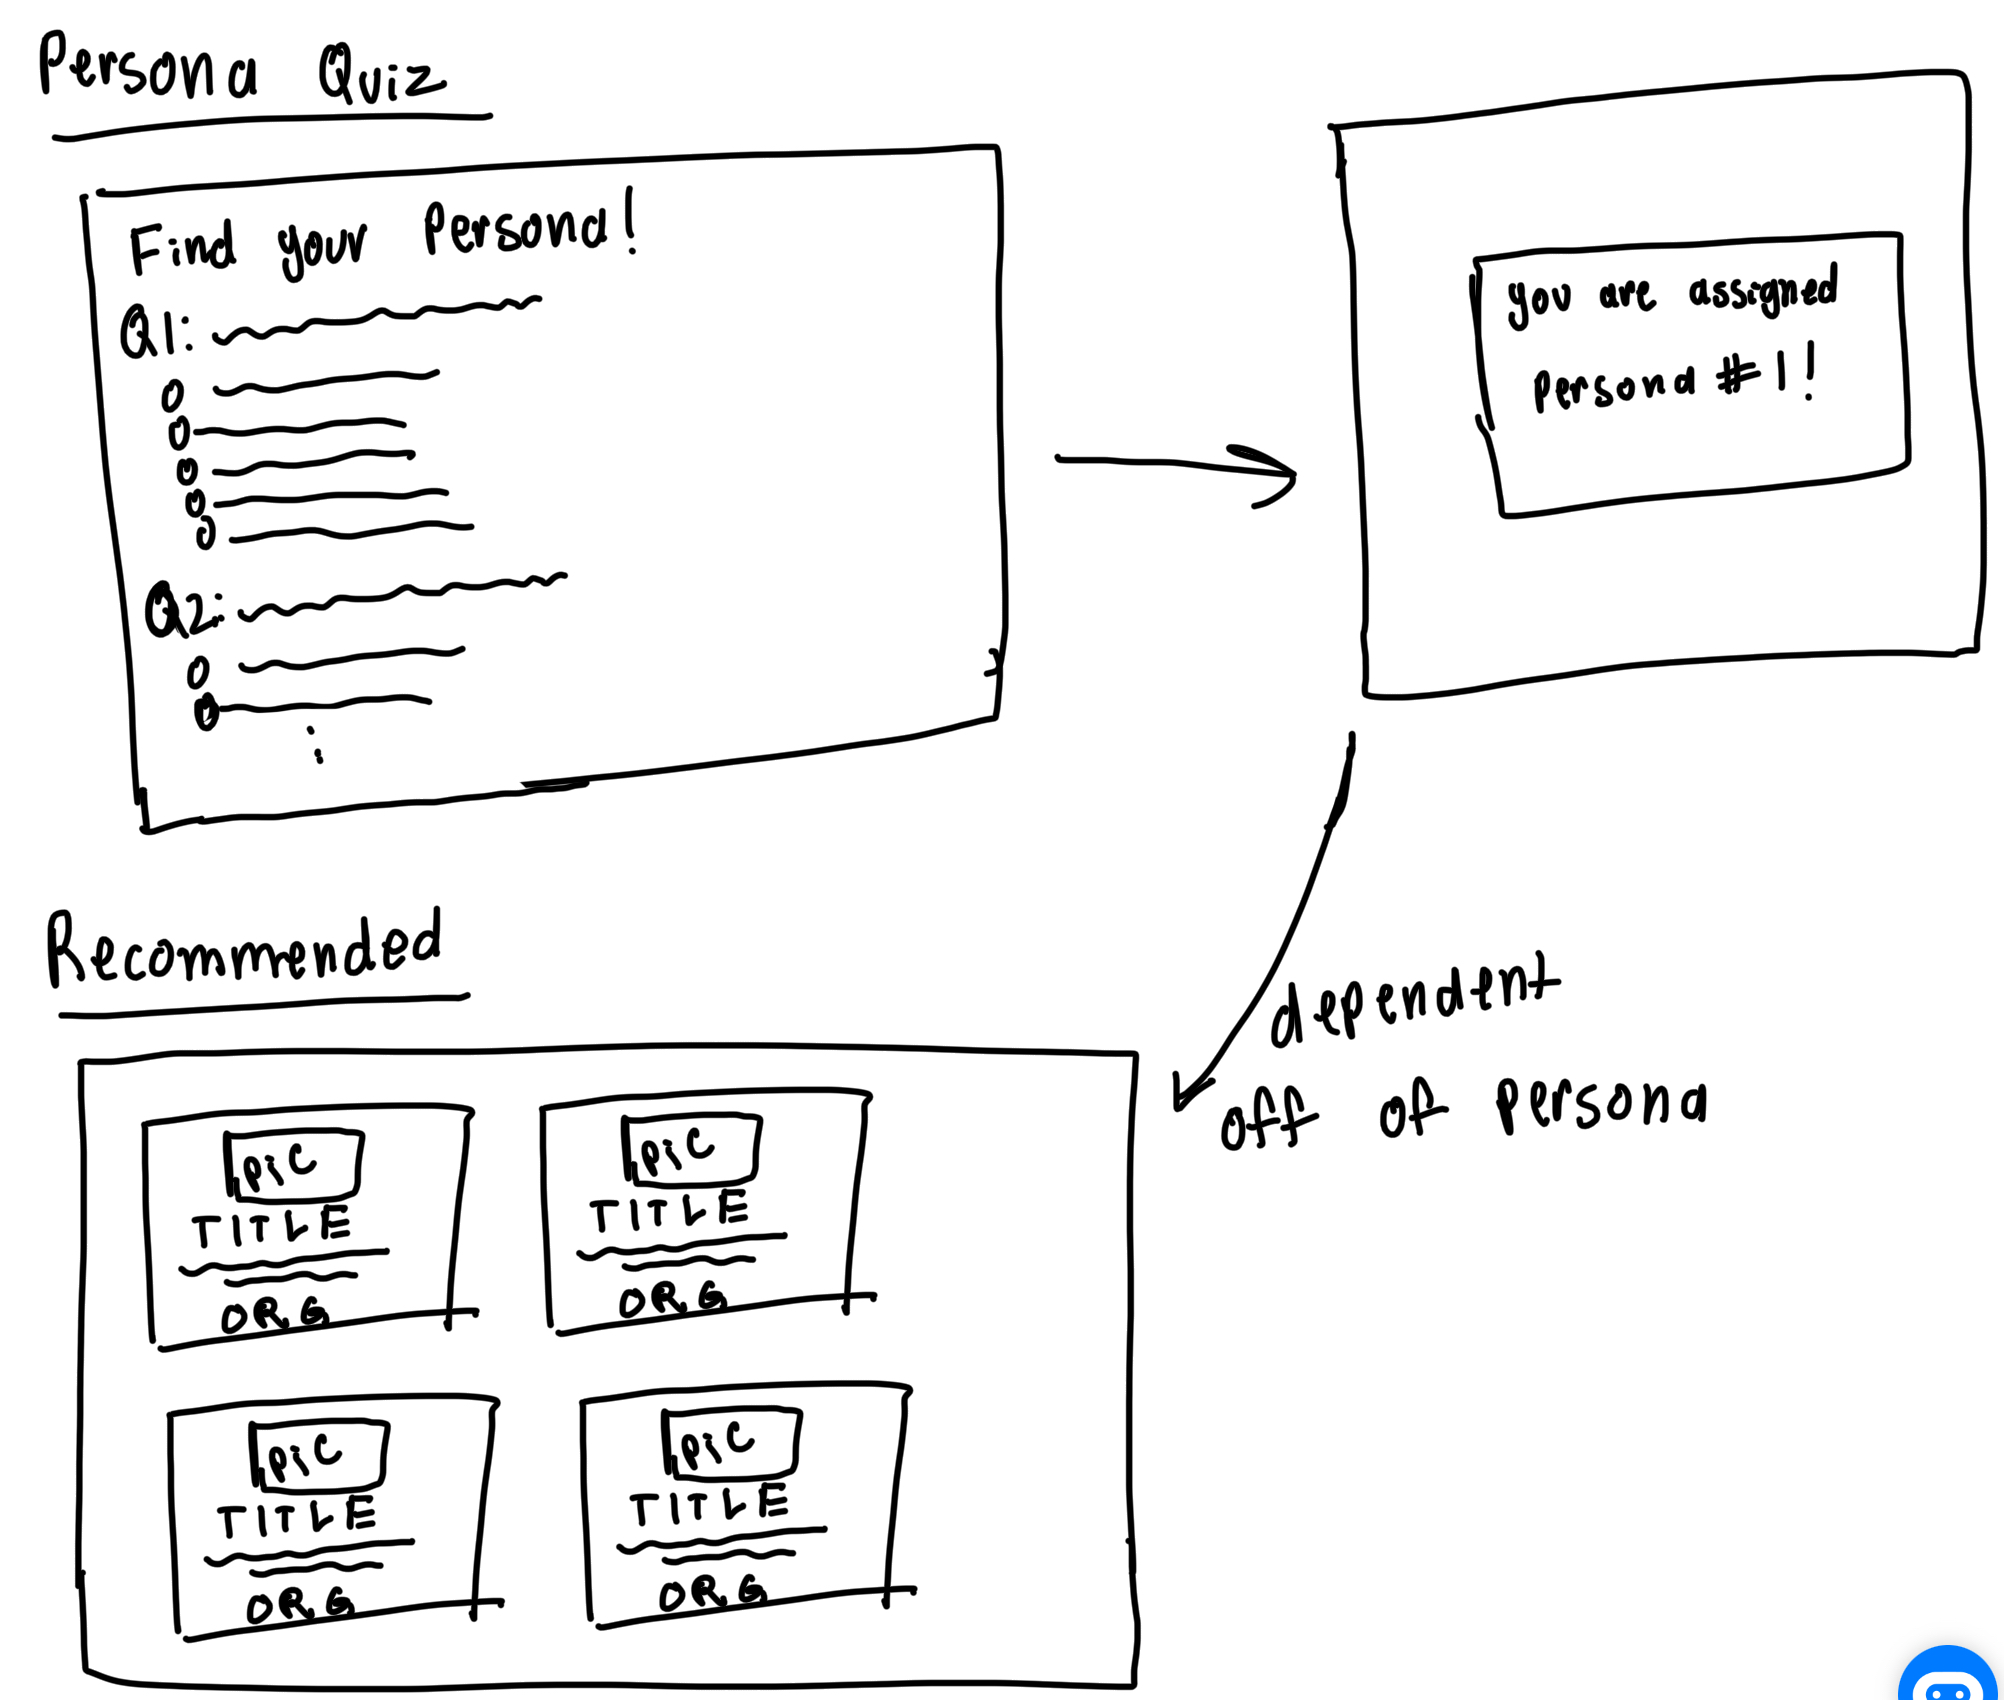 Persona Quiz
Find your Persona!
Q1:
Q2:
you are assigned
persona #1!
Recommended
dependent
off of persona
pic
TITLE
ORG
pic
TITLE
ORG
pic
TITLE
ORG
pic
TITLE
ORG